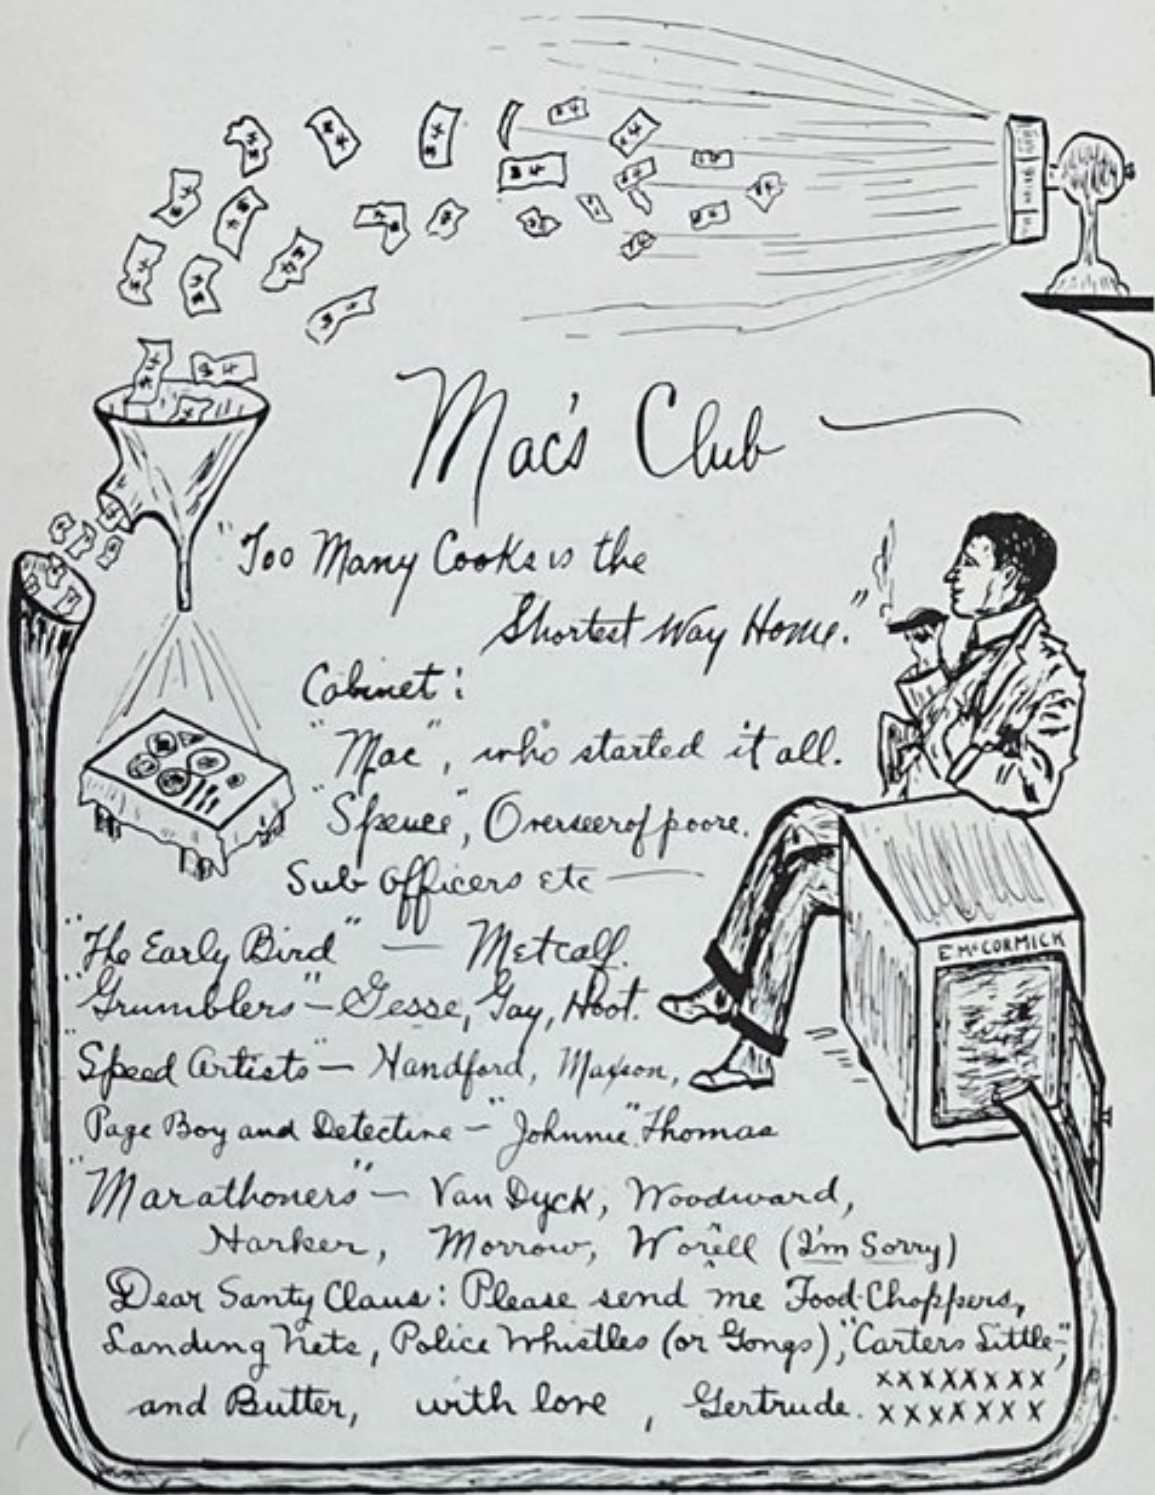 Mac's Club
"Too Many Cooks is the
Shortest Way Home."
Cabinet:
"Mac", who started it all.
"Spence", Overseer of poore.
Sub Officers etc
"The Early Bird" — Metcalf.
"Grumblers" — Gesse, Gay, Hoot.
"Speed Artists" — Handford, Maxson,
Page Boy and Detective — "Johnnie" Thomas
"Marathoners" — Van Dyck, Woodward,
Harker, Morrow, Worell (I'm Sorry)
Dear Santy Claus: Please send me Food-Choppers,
Landing Nets, Police Whistles (or Gongs), "Carters Little-",
and Butter, with love, Gertrude. xxxxxxxx
xxxxxxx
E McCORMICK